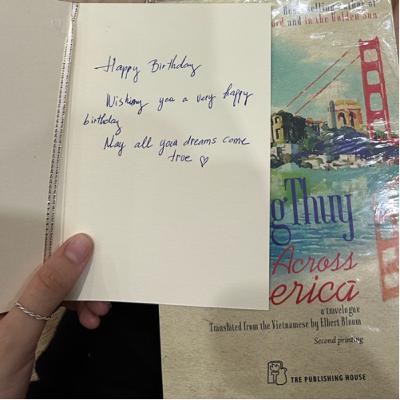 Happy Birthday
Wishing you a very happy
birthday
May all your dreams come
true ♡
Best-selling author of
and in the Golden Sun
g Thuy
Across
erica
a travelogue
Translated from the Vietnamese by Elbert Bloom
Second printing
TRE PUBLISHING HOUSE